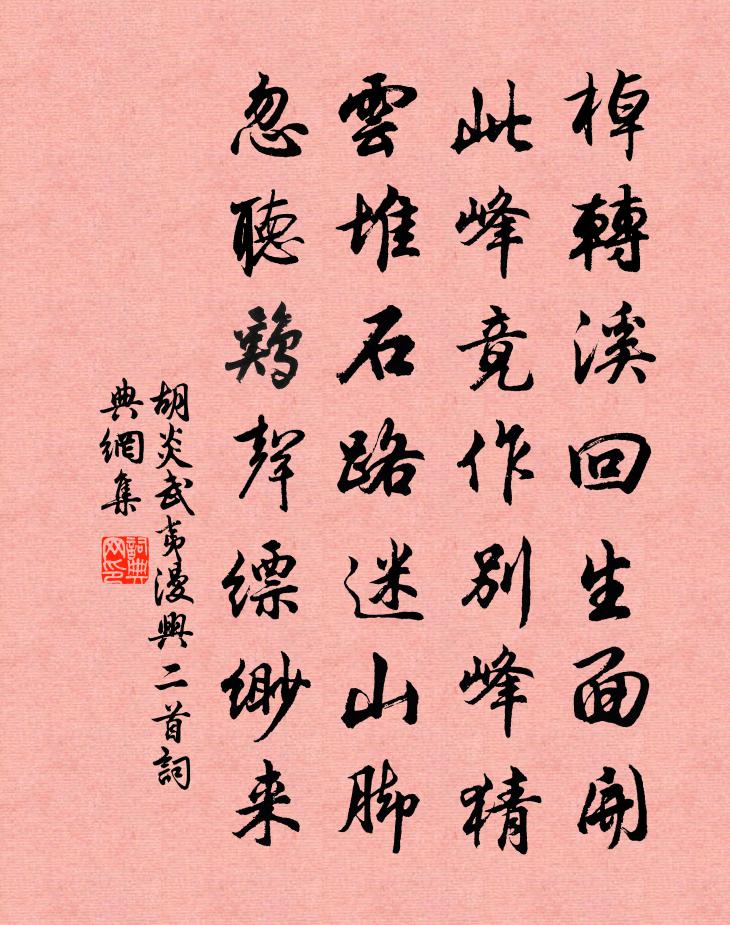 棹轉溪回生面開
此峰竟作別峰猜
雲堆石路迷山脚
忽聽鷄聲縹緲来
胡炎武夷漫興二首詞
典網集
詞典
网印